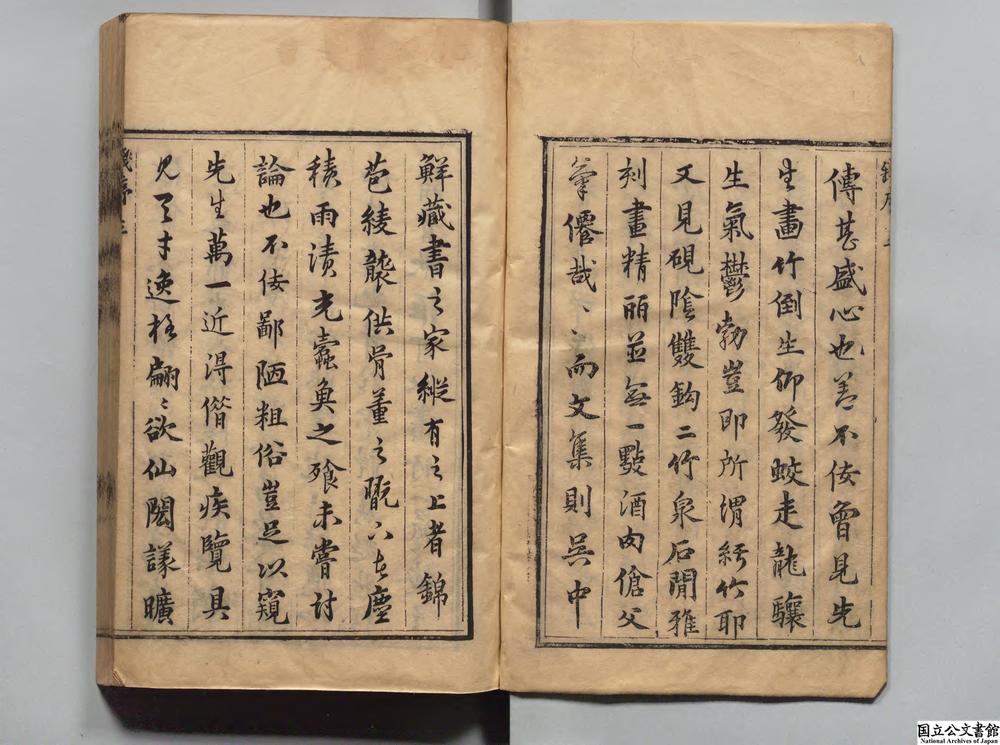 傳甚盛心也若不佞曾見先
生畫竹倒生仰發蛟走龍驤
生氣鬱勃豈即所謂紆竹耶
又見硯陰雙鈎二竹泉石閒雅
刻畫精丽並無一點酒肉傖父
氣僊哉〻〻而文集則吳中
鮮藏書之家縱有之上者錦
苞綾袠供骨董之翫下者塵
積雨漬充蠹魚之飱未嘗討
論也不佞鄙陋粗俗豈足以窺
先生萬一近得借觀疾覽具
見天才逸格翩〻欲仙閎議曠
国立公文書館
National Archives of Japan